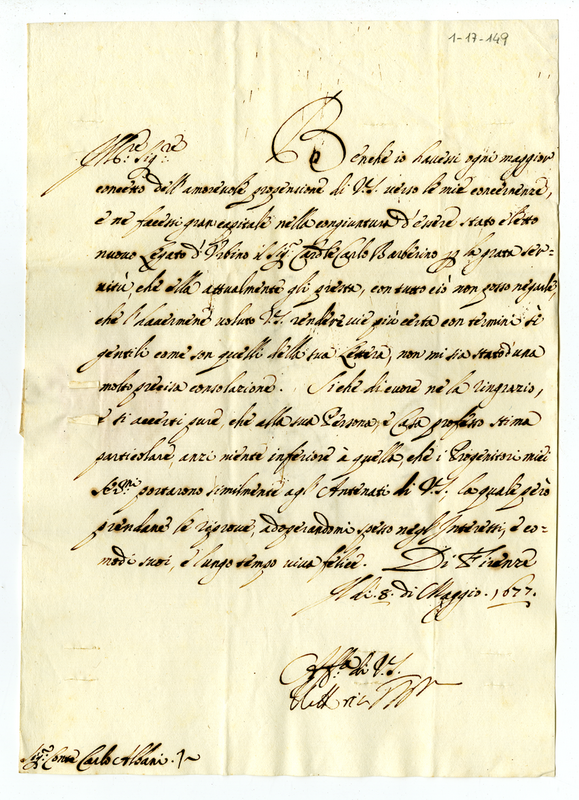 1-17-149
Ill.re Sig.re Benche io havessi ogni maggior
concetto dell'amorevole propensione di V.S. verso le mie concernenze,
e ne facessi gran capitale nella congiuntura d'essere stato eletto
nuovo Legato d'Urbino il Sig.r Card.le Carlo Barberino p la grata ser-
vitù, che ella attualmente gli presta, con tutto ciò non posso negarle,
che l'havermene voluto V.S. rendere vie più certa con termini sì
gentili come son quelli della sua Lettera, non mi sia stato d'una
molto precisa consolazione. Siche di cuore ne la ringrazio,
e si accerti pure, che alla sua Persona, e Casa professo stima
particolare, anzi niente inferiore à quella, che i Progenitori miei
Ser.mi portarono similmente agl'Antenati di V.S. la quale però
prendane le riprove, adoperandomi spesso negl'Interessi, e co-
modi suoi, e lungo tempo viva felice. Di Firenze
li 8. di Maggio. 1677.
Aff.ma di V.S.
Sig.r Conte Carlo Albani.